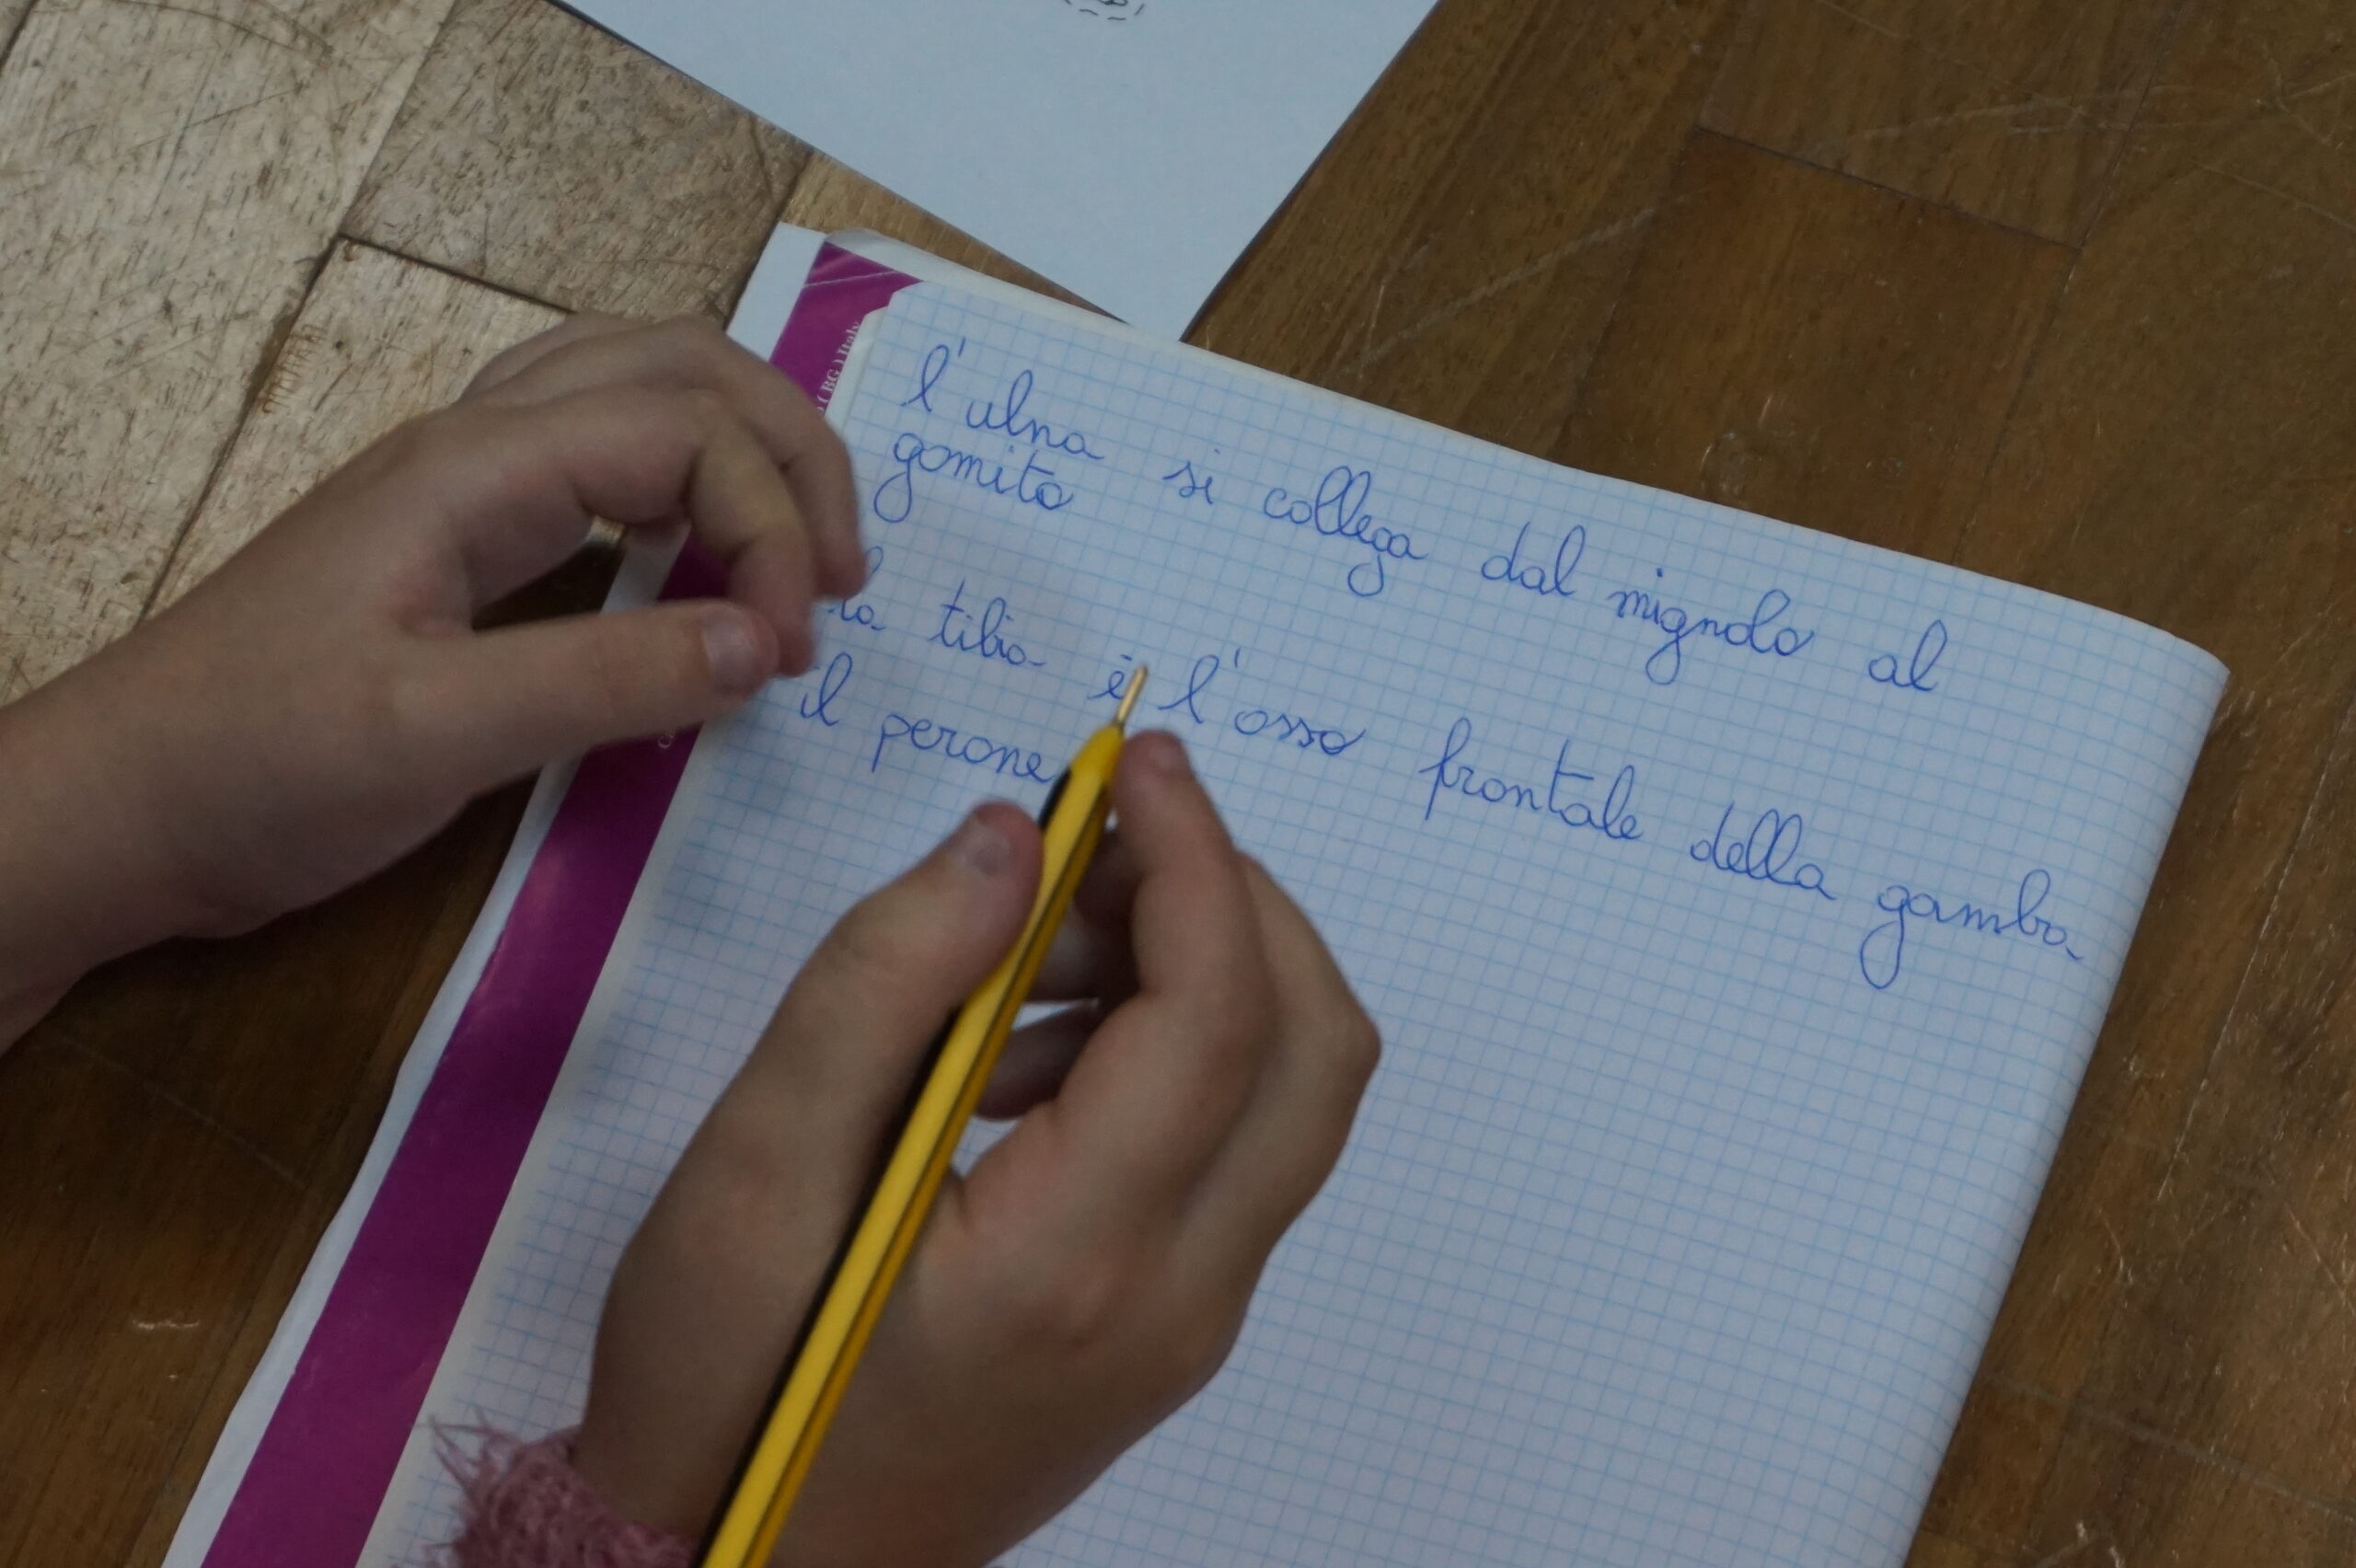 l'ulna si collega dal mignolo al
gomito
la tibia è l'osso frontale della gamba
il perone
(BG) Italy